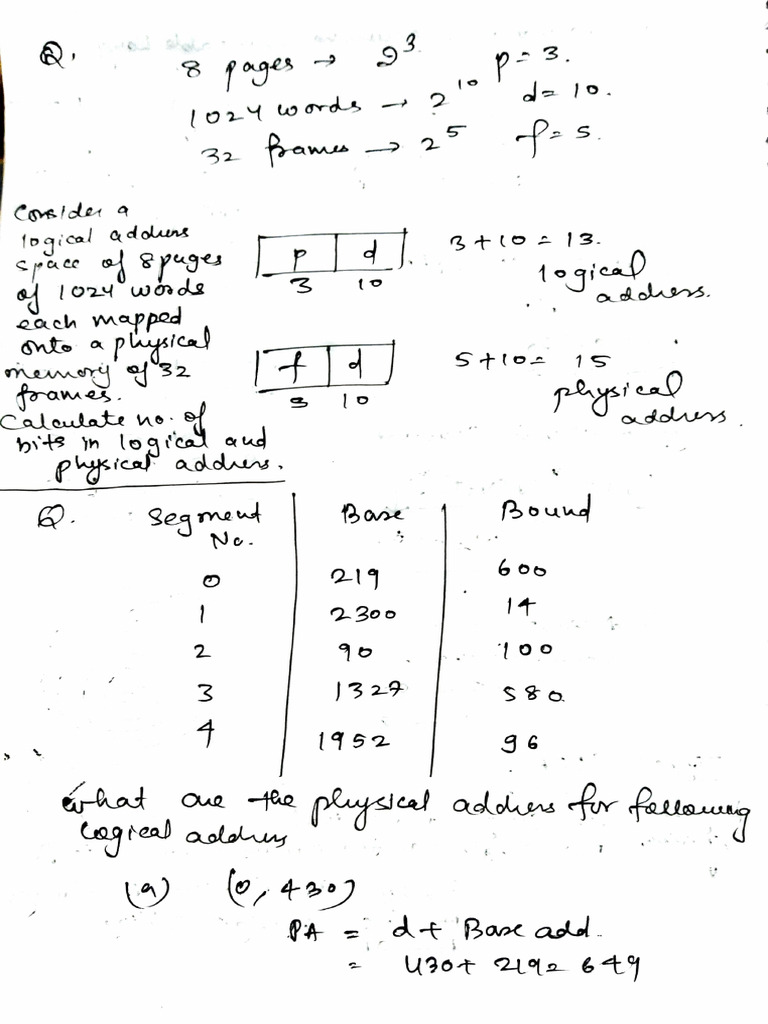 Q.
8 pages → 2^3 p = 3.
1024 words → 2^10 d = 10.
32 frames → 2^5 f = 5.
Consider a
logical address
space of 8 pages
of 1024 words
each mapped
onto a physical
memory of 32
frames.
Calculate no. of
bits in logical and
physical address.
p | d
3 10
3 + 10 = 13.
logical
address.
f | d
5 10
5 + 10 = 15
physical
address.
Q. Segment No. | Base | Bound
0 | 219 | 600
1 | 2300 | 14
2 | 90 | 100
3 | 1327 | 580
4 | 1952 | 96
What are the physical address for following
logical address
(a) (0, 430)
PA = d + Base add.
= 430 + 219 = 649